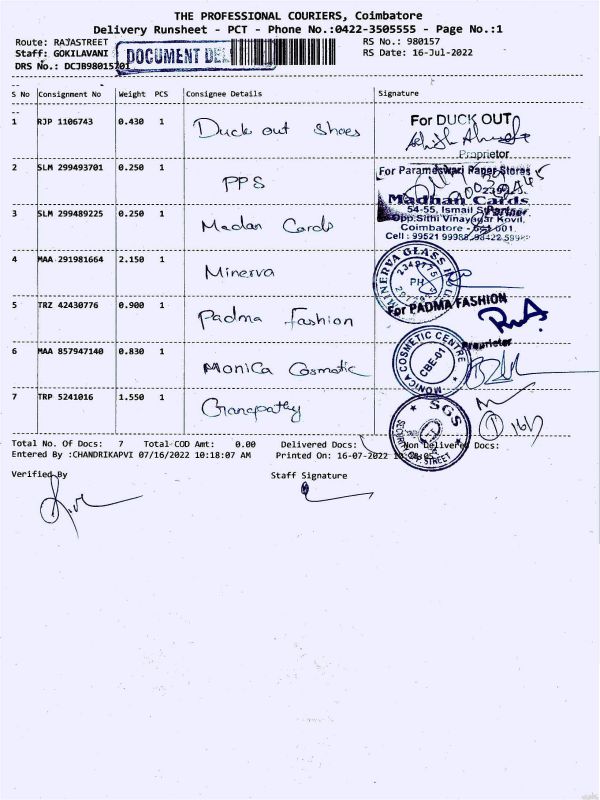 THE PROFESSIONAL COURIERS, Coimbatore
Delivery Runsheet - PCT - Phone No.:0422-3505555 - Page No.:1
Route: RAJASTREET RS No.: 980157
Staff: GOKILAVANI RS Date: 16-Jul-2022
DRS No.: DCJB98015701
DOCUMENT DEL
S No Consignment No Weight PCS Consignee Details Signature
1 RJP 1106743 0.430 1 Duck out Shoes
For DUCK OUT
Proprietor
2 SLM 299493701 0.250 1 PPS
For Parameswari Paper Stores
Partner
3 SLM 299489225 0.250 1 Madan Cards
Madhan Cards
54-55, Ismail St
Opp.Sithi Vinayagar Kovil,
Coimbatore - 641 001.
Cell : 99521 99988, 98422 59982
4 MAA 291981664 2.150 1 Minerva
MINERVA GLASS
PH
5 TRZ 42430776 0.900 1 Padma Fashion
For PADMA FASHION
Proprietor
6 MAA 857947140 0.830 1 Monica Cosmatic
MONICA COSMETIC CENTRE
CBE-01
7 TRP 5241016 1.550 1 Ganapathy
SGS
STREET
16/7
Total No. Of Docs: 7 Total COD Amt: 0.00 Delivered Docs: Non Delivered Docs:
Entered By :CHANDRIKAPVI 07/16/2022 10:18:07 AM Printed On: 16-07-2022
Verified By Staff Signature